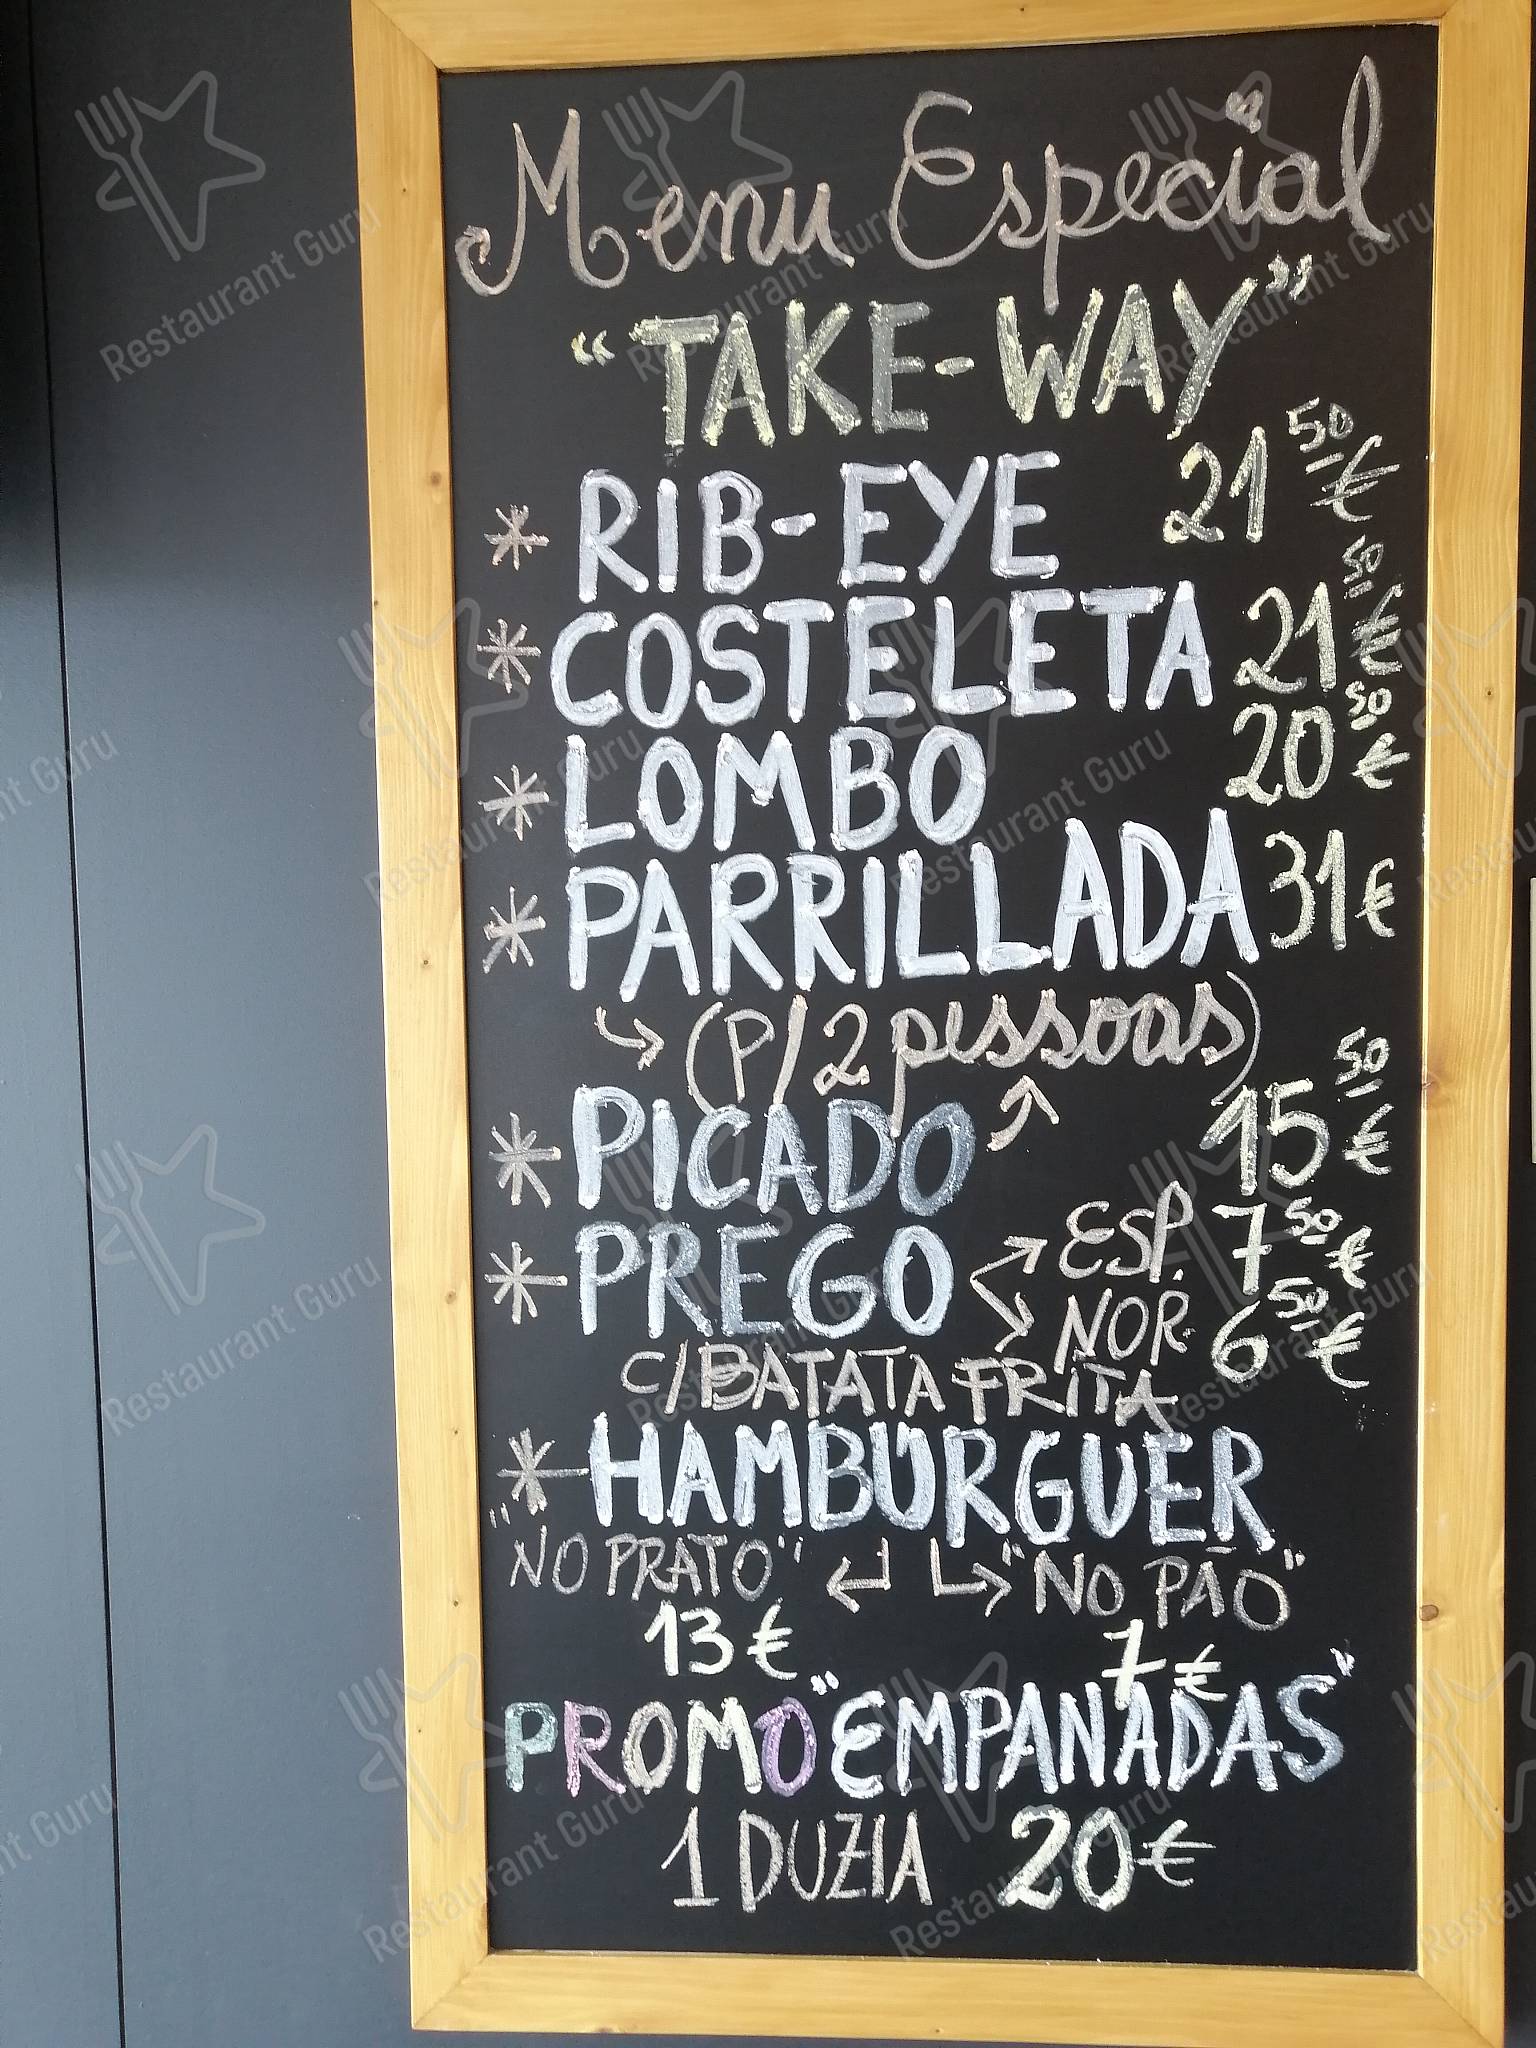 Menu Especial
"TAKE-WAY"
* RIB-EYE 21 50 €
* COSTELETA 21 50 €
* LOMBO 20 50 €
* PARRILLADA 31 €
(P/2 pessoas)
* PICADO 15 50 €
* PREGO ESP. 7 50 €
NOR. 6 50 €
C/BATATA FRITA
* HAMBURGUER
"NO PRATO" "NO PÃO"
13 € 7 €
PROMO "EMPANADAS"
1 DUZIA 20 €
Restaurant Guru